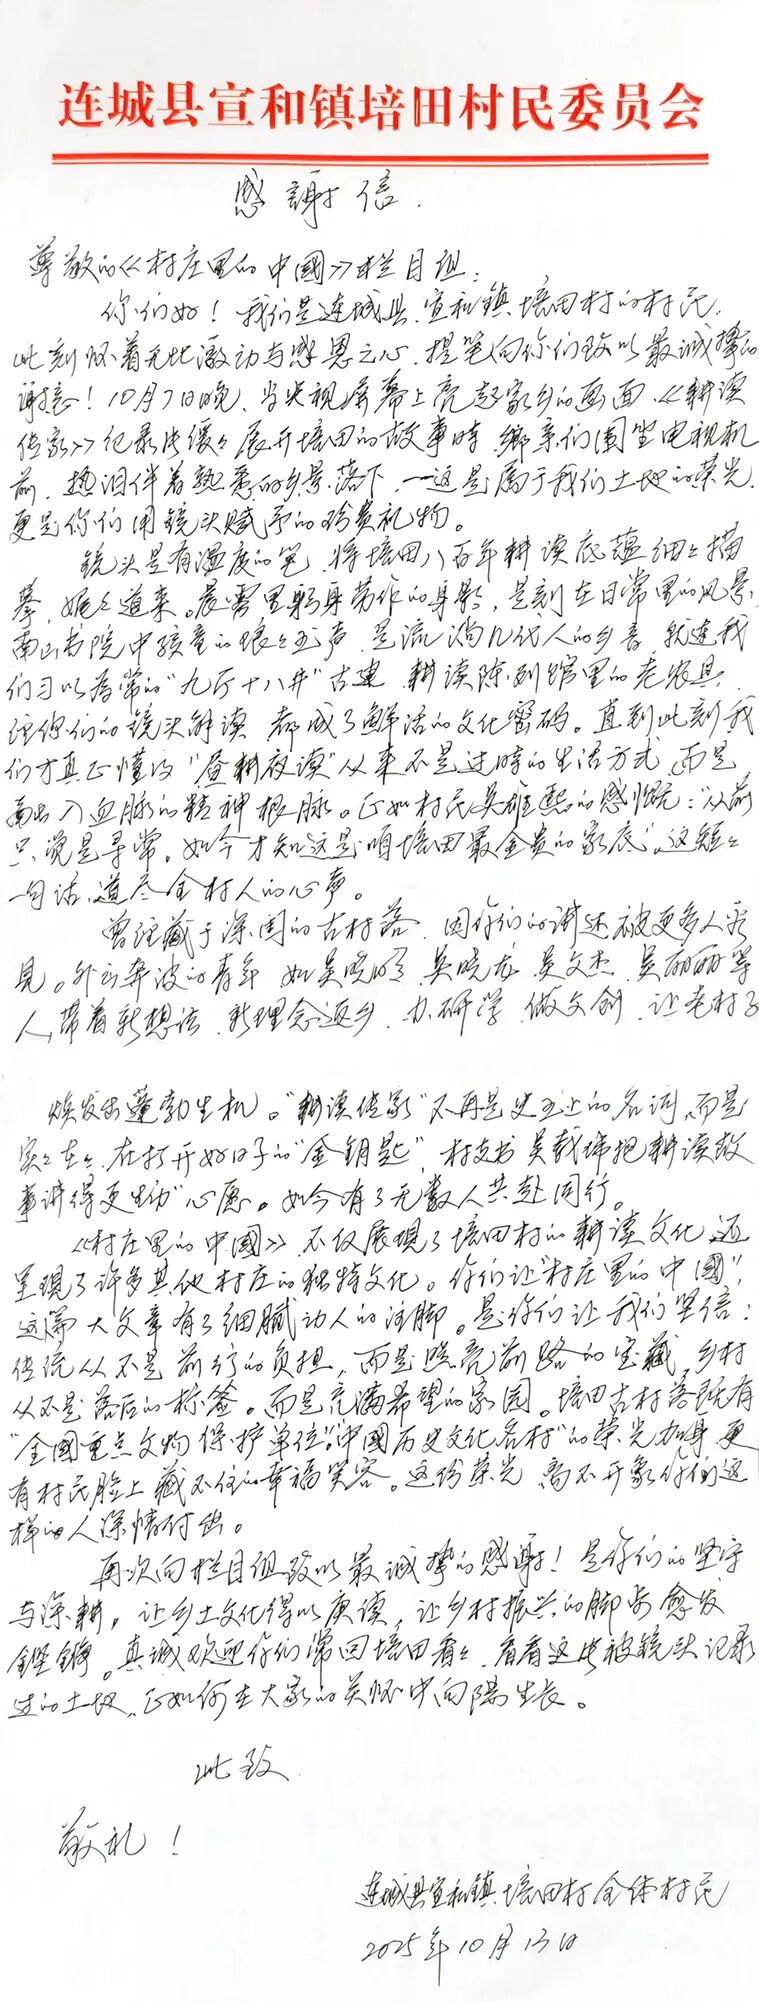 连城县宣和镇培田村民委员会
感謝信.
尊敬的《村庄里的中國》栏目组：
你们好！我们是连城县宣和镇培田村的村民,
此刻怀着无比激动与感恩之心,提笔向你们致以最诚挚的
謝意！10月7日晚,当央视屏幕上亮起家乡的画面,《耕读
传家》纪录片缓々展开培田的故事时,鄉亲们围坐电视机
前,热泪伴着熟悉的乡景落下,一这是属于我们土地的荣光,
更是你们用镜头赋予的珍贵礼物。
镜头是有温度的笔,将培田八百年耕读底蕴细々描
摹,娓々道来。晨雾里躬身劳作的身影,是刻在日常里的风景,
南山书院中孩童的琅々书声,是流淌几代人的乡音,就连我
们习以为常的"九厅十八井"古建,耕读陈列馆里的老农具,
经你们的镜头解读,都成了鲜活的文化密码。直到此刻我
们才真正懂得"昼耕夜读"从来不是过时的生活方式,而是
融入血脉的精神根脉。正如村民吴雄熙的感慨:"从前
只觉是寻常。如今才知这是咱培田最金贵的家底",这短々
一句话,道尽全村人的心声。
曾经藏于深闺的古村落,因你们的讲述被更多人看
见。外出奔波的青年,如吴晓明,吴晓龙,吴文杰,吴丽丽等
人,带着新想法,新理念返乡,办研学,做文创,让老村子
焕发出蓬勃生机。"耕读传家"不再是史书上的名词,而是
实々在々,在打开好日子的"金钥匙",村支书吴载坤"把耕读故
事讲得更生动"心愿。如今有了无数人共赴同行。
《村庄里的中國》不仅展現了培田村的耕读文化,还
呈現了许多其他村庄的独特文化。你们让"村庄里的中國",
这篇大文章有了细腻动人的注脚。是你们让我们坚信：
传统从不是前行的负担,而是照亮前路的宝藏,乡村
从不是落后的标签。而是充满希望的家园。培田古村落既有
"全國重点文物保护单位","中國历史文化名村"的荣光加身,更
有村民脸上藏不住的幸福笑容。这份荣光,离不开象你们这
样的人深情付出。
再次向栏目组致以最诚挚的感謝！是你们的坚守
与深耕,让乡土文化得以赓读,让乡村振兴的脚步愈发
鏗鏘。真诚欢迎你们常回培田看々,看看这片被镜头记录
过的土地,正如何在大家的关怀中向陽生长。
此致
敬礼！
连城县宣和镇培田村全体村民
2025年10月13日